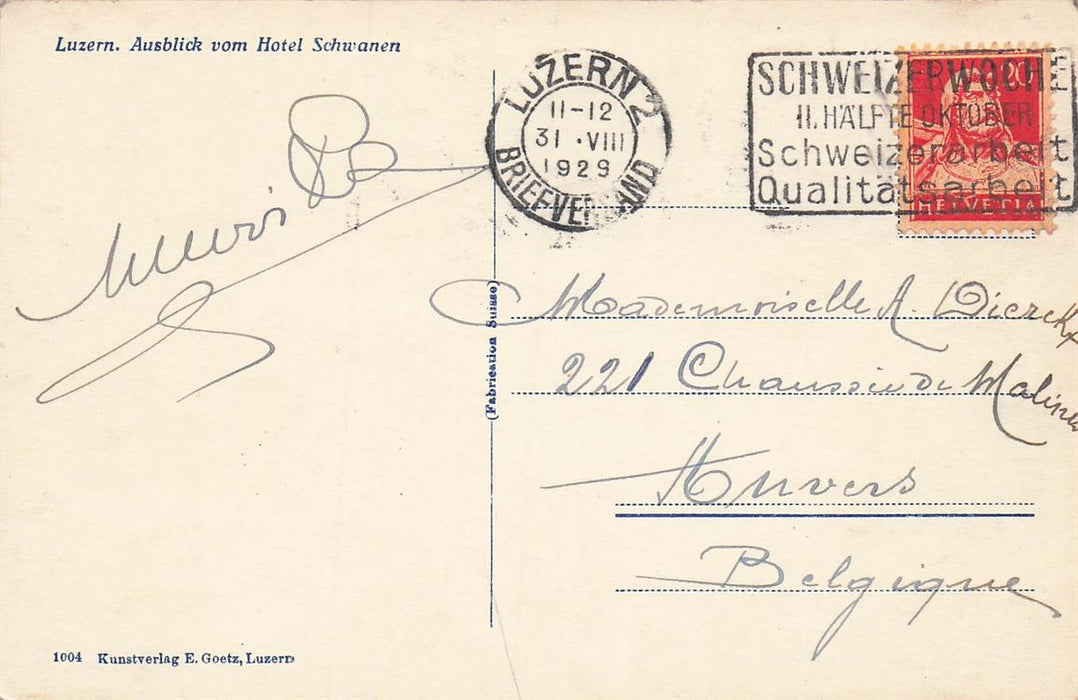 Luzern. Ausblick vom Hotel Schwanen
LUZERN 2
11-12
31.VIII
1929
BRIEFVERSAND
SCHWEIZERWOCHE
II. HÄLFTE OKTOBER
Schweizerarbeit
Qualitätsarbeit
20
HELVETIA
(Fabrication Suisse)
Mademoiselle A. Dierckx
221 Chaussée de Malines
Anvers
Belgique
1004 Kunstverlag E. Goetz, Luzern